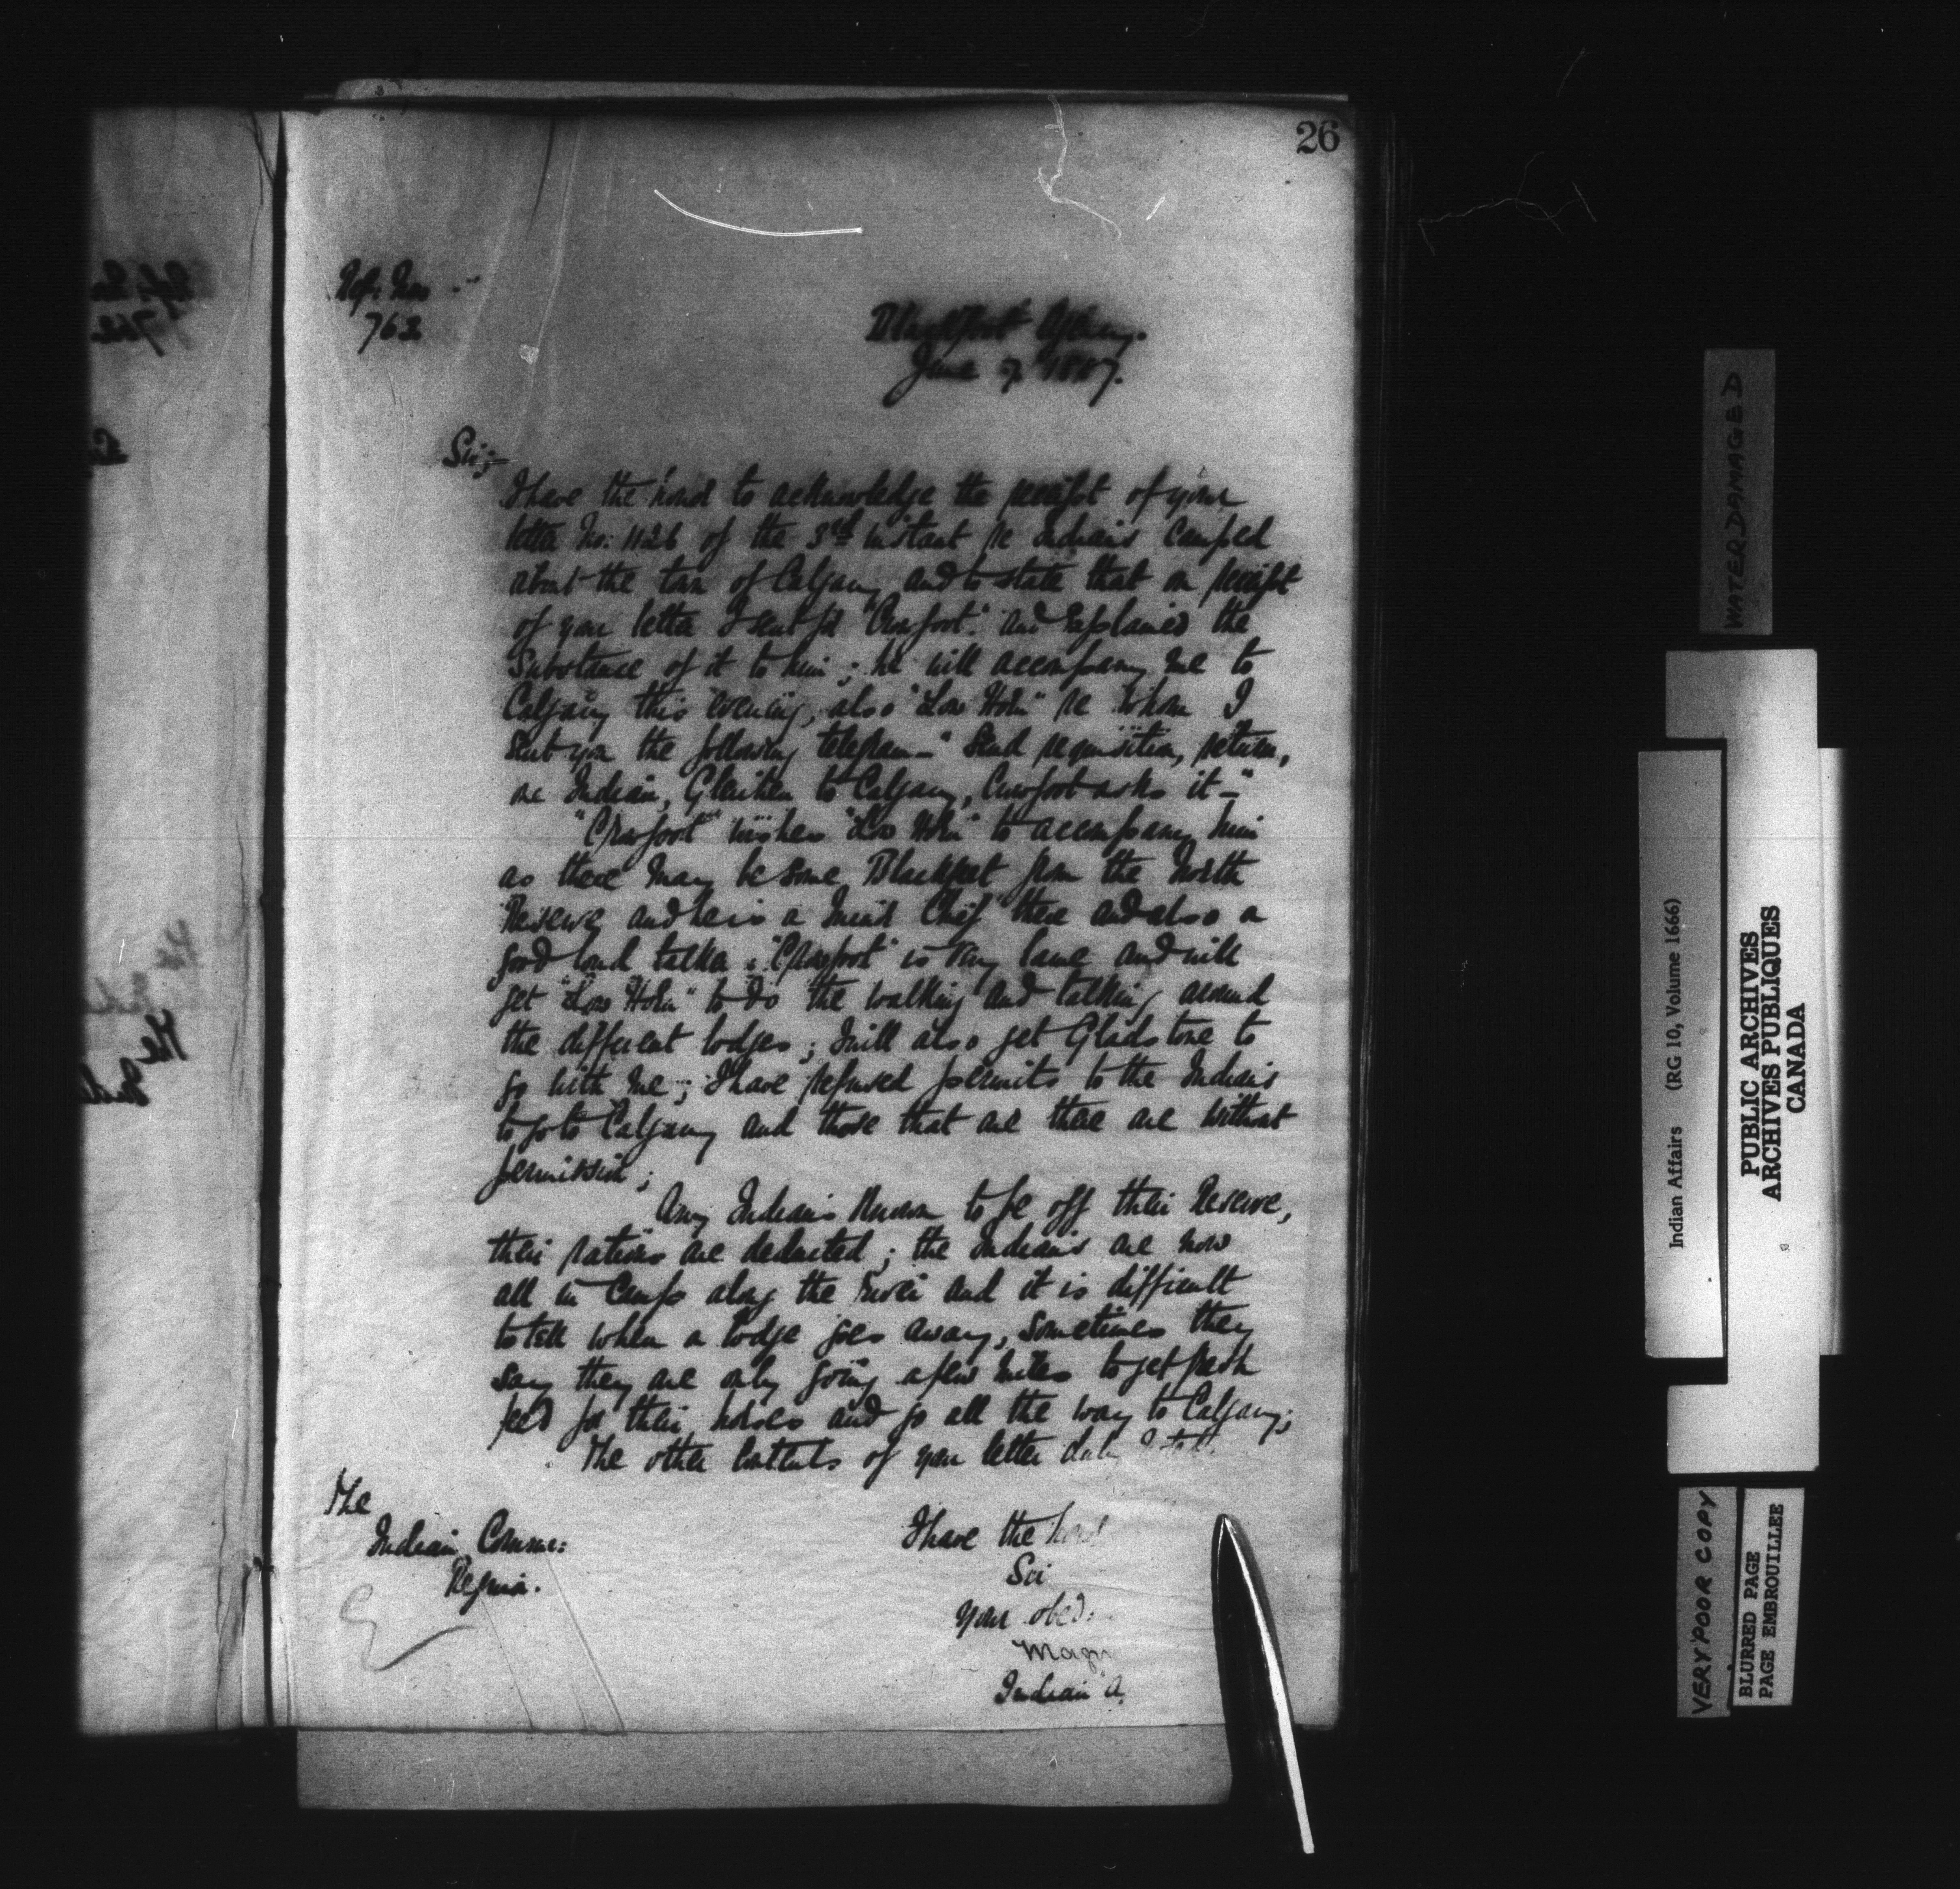 26
Ref: No
763
Blackfoot Agency.
June 7 1887.
Sir;
I have the honor to acknowledge the receipt of your
letter No: 1126 of the 3rd instant re Indians camped
about the town of Calgary and to state that on receipt
of your letter I sent for "Crowfoot" and explained the
substance of it to him; he will accompany me to
Calgary this evening, also "Low Horn" re whom I
sent you the following telegram—"Send requisition, return,
one Indian, Gleichen to Calgary, Crowfoot asks it—"
"Crowfoot" wishes "Low Horn" to accompany him
as there may be some Blackfeet from the North
Reserve and he is a minor Chief there and also a
good loud talker; "Crowfoot" is very lame and will
get "Low Horn" to do the walking and talking around
the different lodges; I will also get Gladstone to
go with me; I have refused permits to the Indians
to go to Calgary and those that are there are without
permission;
Any Indians known to be off their Reserve,
their rations are deducted; the Indians are now
all in Camps along the river and it is difficult
to tell when a lodge goes away, sometimes they
say they are only going a few miles to get fresh
feed for their horses and go all the way to Calgary;
The other contents of your letter duly
The
Indian Commr:
Regina.
I have the honor
Sir
Your obed.
Magn
Indian A.
WATER DAMAGED
Indian Affairs (RG 10, Volume 1666)
PUBLIC ARCHIVES
ARCHIVES PUBLIQUES
CANADA
VERY POOR COPY
BLURRED PAGE
PAGE EMBROUILLEE